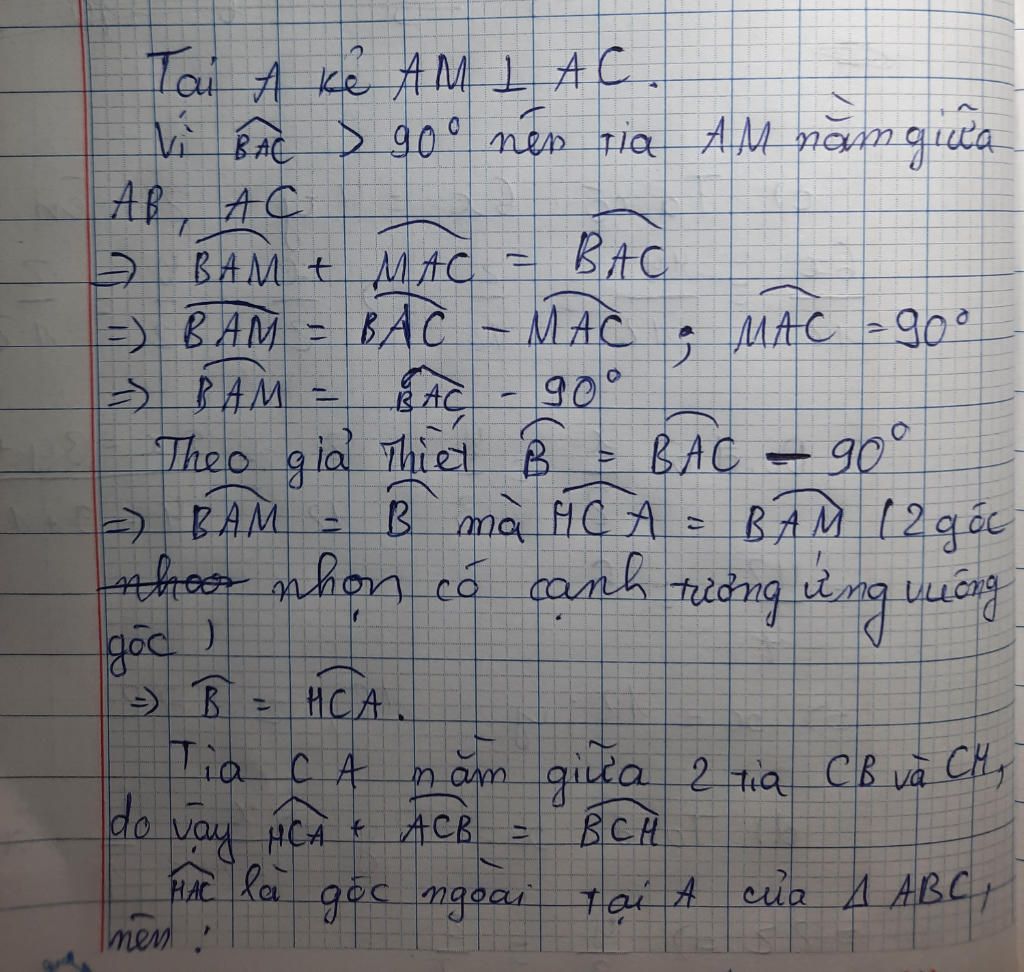 Tại A kẻ AM ⊥ AC.
Vì \widehat{BAC} > 90° nên tia AM nằm giữa
AB, AC
=> \widehat{BAM} + \widehat{MAC} = \widehat{BAC}
=> \widehat{BAM} = \widehat{BAC} - \widehat{MAC} ; \widehat{MAC} = 90°
=> \widehat{BAM} = \widehat{BAC} - 90°
Theo giả thiết \widehat{B} = \widehat{BAC} - 90°
=> \widehat{BAM} = \widehat{B} mà \widehat{HCA} = \widehat{BAM} (2 góc
nhọn có cạnh tương ứng vuông
góc)
=> \widehat{B} = \widehat{HCA}.
Tia CA nằm giữa 2 tia CB và CH,
do vậy \widehat{HCA} + \widehat{ACB} = \widehat{BCH}
\widehat{HAC} là góc ngoài tại A của Δ ABC,
nên :